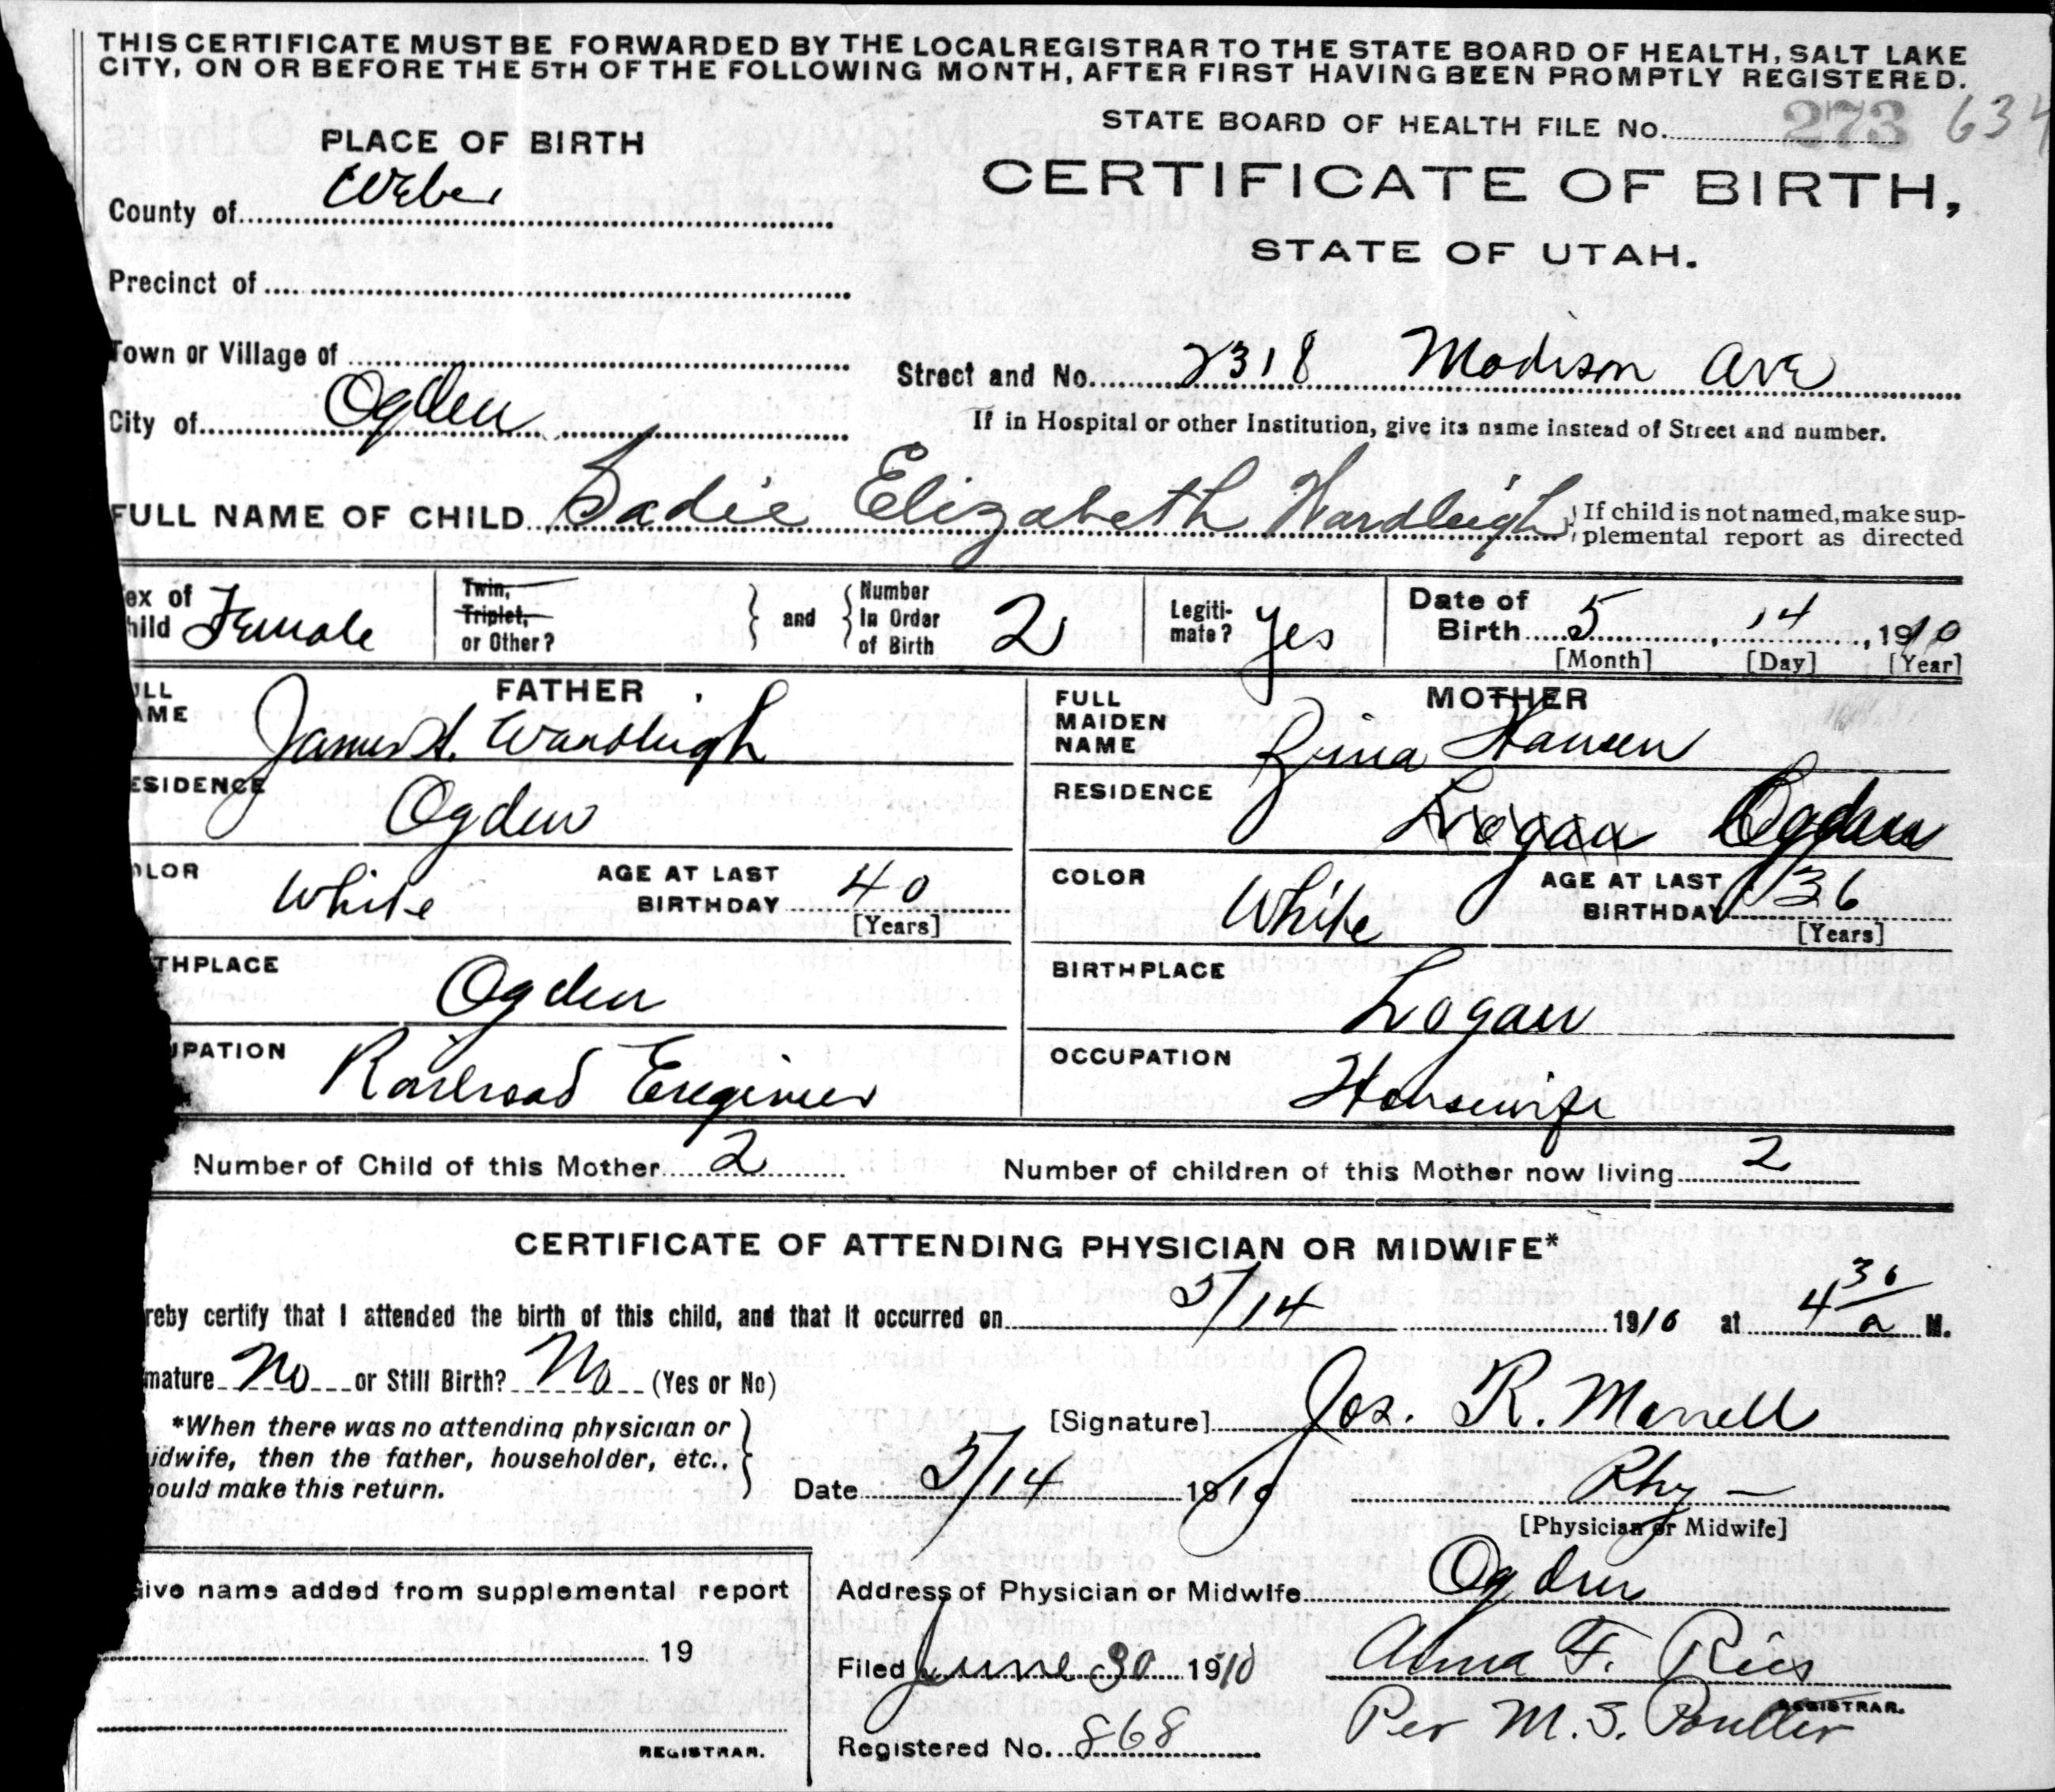 THIS CERTIFICATE MUST BE FORWARDED BY THE LOCAL REGISTRAR TO THE STATE BOARD OF HEALTH, SALT LAKE
CITY, ON OR BEFORE THE 5TH OF THE FOLLOWING MONTH, AFTER FIRST HAVING BEEN PROMPTLY REGISTERED.
STATE BOARD OF HEALTH FILE No. 273 634
PLACE OF BIRTH
CERTIFICATE OF BIRTH,
STATE OF UTAH.
County of Weber
Precinct of
Town or Village of
Street and No. 2318 Madison Ave
City of Ogden
If in Hospital or other Institution, give its name instead of Street and number.
FULL NAME OF CHILD Sadie Elizabeth Wardleigh { If child is not named, make sup-
plemental report as directed
ex of
hild Female
Twin,
Triplet,
or Other?
} and {
Number
In Order
of Birth 2
Legiti-
mate? yes
Date of
Birth 5, 14, 1910
[Month] [Day] [Year]
FATHER
ULL
AME James A. Wardleigh
ESIDENCE Ogden
OLOR White AGE AT LAST
BIRTHDAY 40
[Years]
THPLACE Ogden
UPATION Railroad Engineer
MOTHER
FULL
MAIDEN
NAME Zina Hansen
RESIDENCE Logan Ogden
COLOR White AGE AT LAST
BIRTHDAY 36
[Years]
BIRTHPLACE Logan
OCCUPATION Housewife
Number of Child of this Mother 2 Number of children of this Mother now living 2
CERTIFICATE OF ATTENDING PHYSICIAN OR MIDWIFE*
reby certify that I attended the birth of this child, and that it occurred on 5/14 1910 at 4 30 a M.
mature No or Still Birth? No (Yes or No)
*When there was no attending physician or
idwife, then the father, householder, etc.,
ould make this return.
[Signature] Jos. R. Morrell
Date 5/14 1910 Phy -
[Physician or Midwife]
Give name added from supplemental report
19
REGISTRAR.
Address of Physician or Midwife Ogden
Filed June 30 1910 Alma F. Rees
REGISTRAR.
Registered No. 868 Per M. S. Poulter